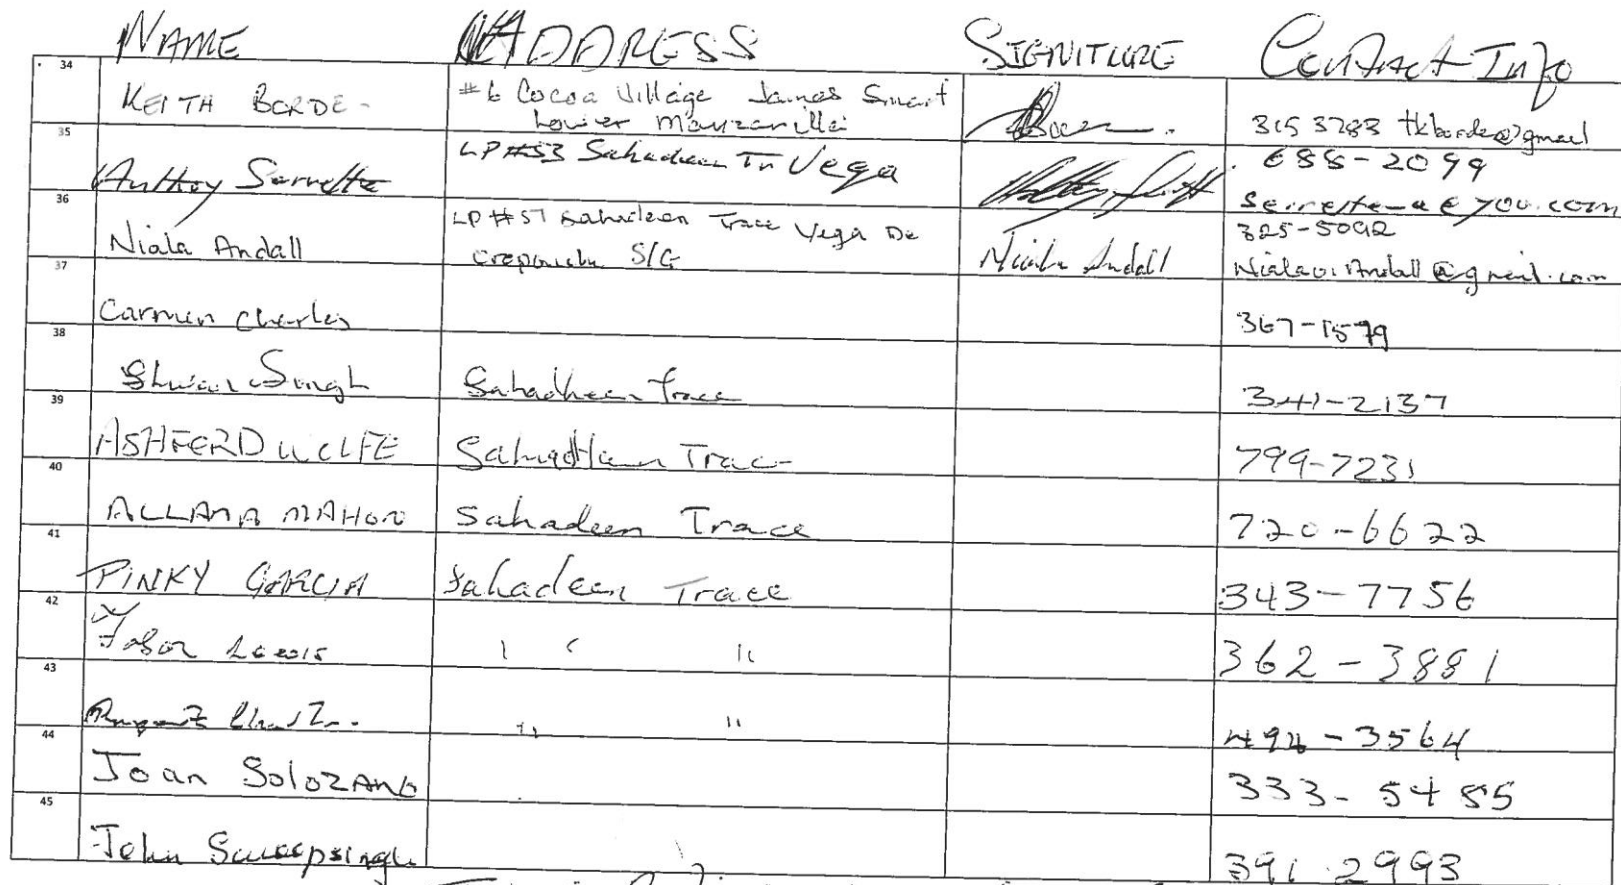 NAME ADDRESS SIGNITURE Contact Info
34 KEITH BORDE - #6 Cocoa Village James Smart
Lower Manzanilla 315 3783 tkborde@gmail
35 Anthoy Serrette LP #53 Sahadeen Tr Vega 688-2099
Serrette-a@you.com
36 Niala Andall LP #57 Sahadeen Trace Vega De S/G Niala Andall 325-5092
@gmail.com
37 Carmen Charles 367-1579
38 Singh Sahadheen Trace 341-2137
39 ASHFORD WOLFE Trace 799-7231
40 ALLAMA MAHON Sahadeen Trace 720-6622
41 PINKY GARCIA Sahadeen Trace 343-7756
42 Lewis " " 362-3881
43 " " 494-3564
44 Joan SolozANO 333-5485
45 John 391 2993